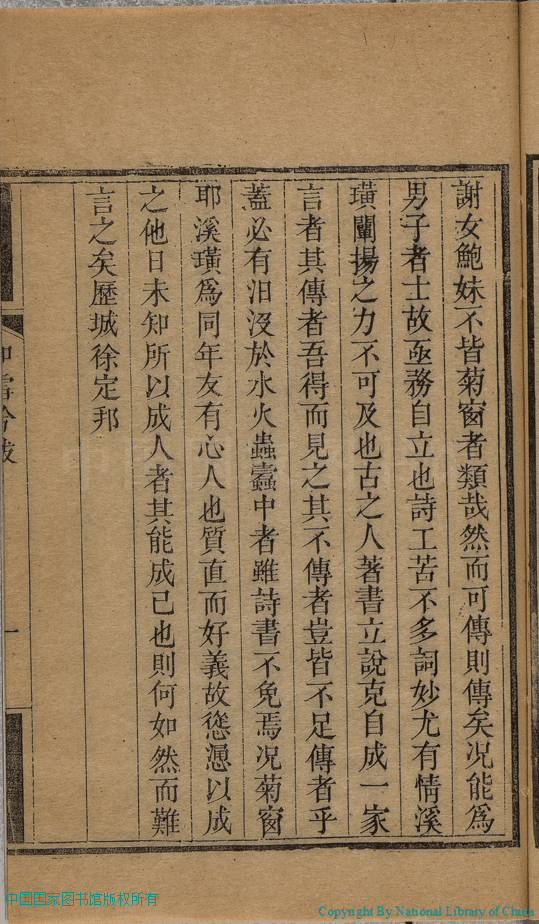 謝女鮑妹不皆菊窗者類哉然而可傳則傳矣况能爲
男子者士故亟務自立也詩工苦不多詞妙尤有情溪
璜闡揚之力不可及也古之人著書立說克自成一家
言者其傳者吾得而見之其不傳者豈皆不足傳者乎
蓋必有汨沒於水火蟲蠹中者雖詩書不免焉况菊窗
耶溪璜爲同年友有心人也質直而好義故慫慂以成
之他日未知所以成人者其能成己也則何如然而難
言之矣歷城徐定邦
跋
一
中国国家图书馆版权所有
Copyright By National Library of China